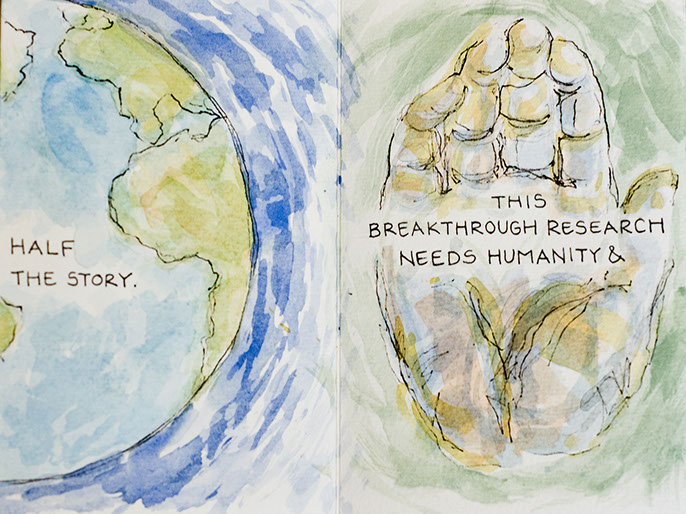 HALF
THE STORY.
THIS
BREAKTHROUGH RESEARCH
NEEDS HUMANITY &